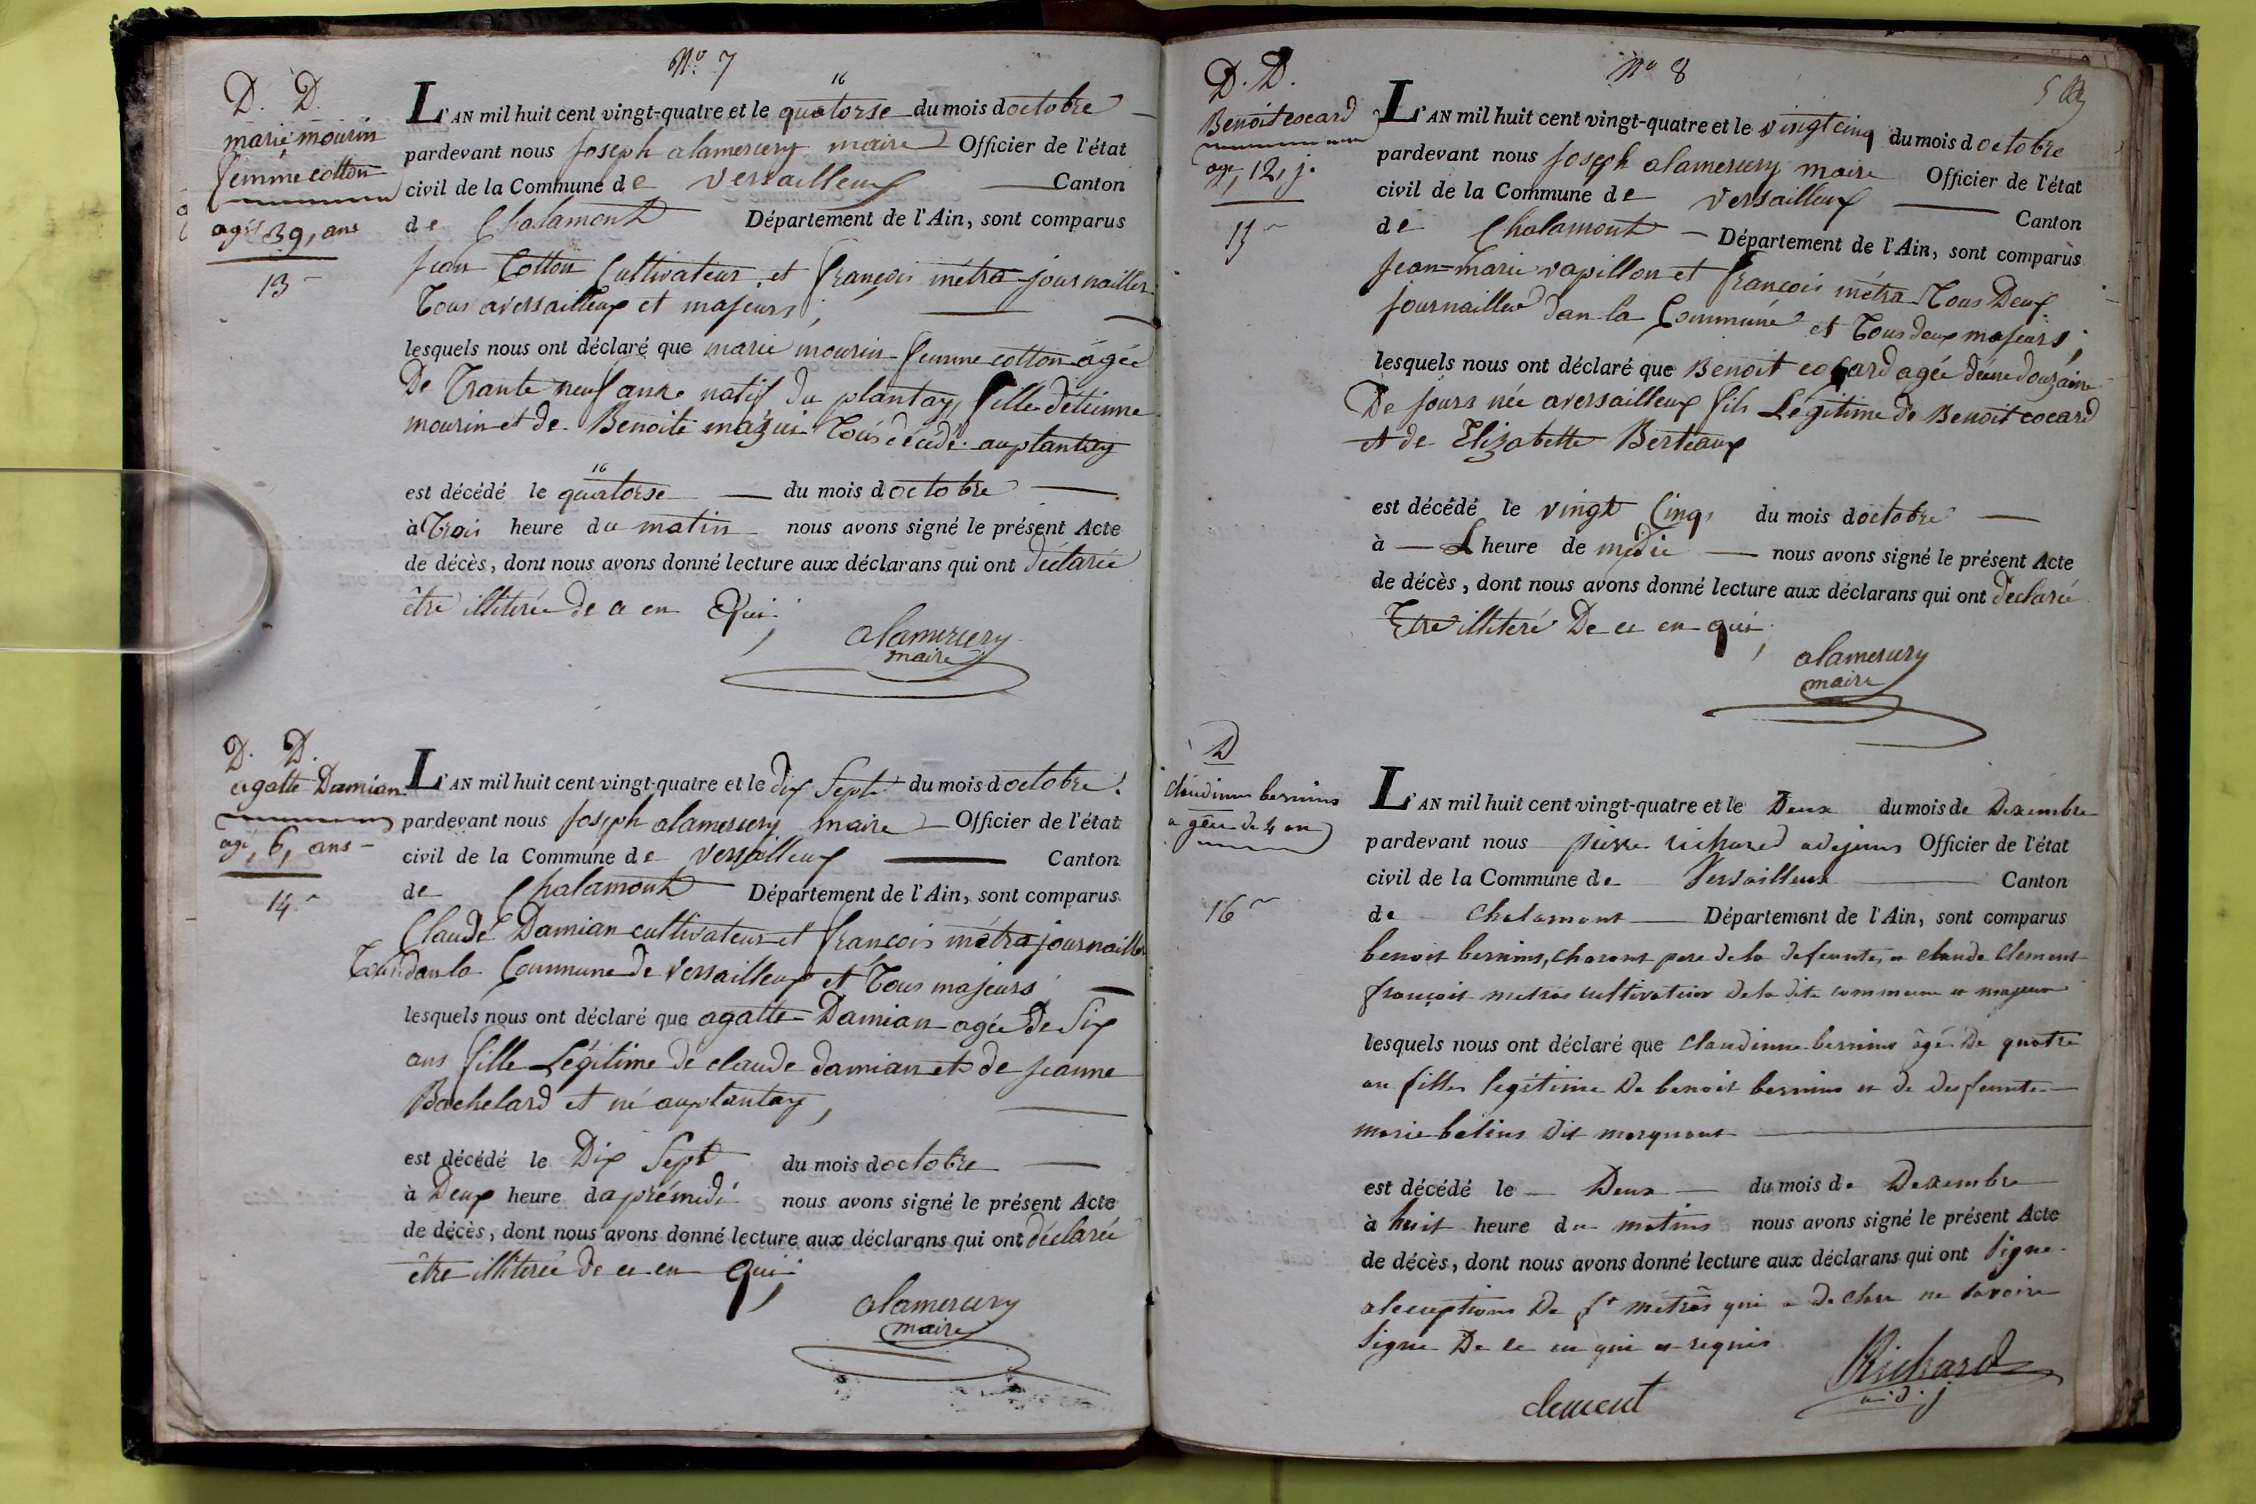 N.o 7
D. D.
marie mourin
femme cotton
agée 39, ans
13
16
L'AN mil huit cent vingt-quatre et le quatorse du mois d octobre
pardevant nous joseph alamercery maire Officier de l'état
civil de la Commune de versailleux Canton
de Chalamont Département de l'Ain, sont comparus
jean Cotton Cultivateur et françois métra journallier
Tous aversailleux et majeurs;
lesquels nous ont déclaré que marie mourin femme cotton âgée
De Trante neuf ans natif du plantay, fille détienne
mourin et de Benoite mazui Tous décédé auplantay
16
est décédé le quatorse du mois d octobre
à Trois heure du matin nous avons signé le présent Acte
de décès, dont nous avons donné lecture aux déclarans qui ont déclarée
être illiterée de ce en Qui;
alamercery
maire
D. D.
agatte Damian
agé, 6, ans
14
L'AN mil huit cent vingt-quatre et le dix Sept du mois d octobre
pardevant nous joseph alamercery maire Officier de l'état
civil de la Commune de versailleux Canton
de Chalamont Département de l'Ain, sont comparus
Claude Damian cultivateur et françois métra journaillier
Tous dan la Commune de versailleux et Tous majeurs
lesquels nous ont déclaré que agatte Damian agée De Six
ans fille Légitime de claude damian et de jeanne
Bachelard et né auplantay,
est décédé le Dix Sept du mois d octobre
à Deux heure daprémidi nous avons signé le présent Acte
de décès, dont nous avons donné lecture aux déclarans qui ont déclarée
être illiterée de ce en Qui;
alamercery
maire
N.o 8
D. D.
Benoit cocard
age, 12, j.
15
L'AN mil huit cent vingt-quatre et le vingt cinq du mois d octobre
pardevant nous joseph alamercery maire Officier de l'état
civil de la Commune de versailleux Canton
de Chalamont Département de l'Ain, sont comparus
jean-marie vapillon et françois métra Tous Deux
journaillier dan la Commune et Tous deux majeurs;
lesquels nous ont déclaré que Benoit cocard agée deune douzaine
De jours née aversailleux fils Légitime de Benoit cocard
et de Elizabette Berteaux
est décédé le vingt Cinq du mois d octobre
à L heure de midie nous avons signé le présent Acte
de décès, dont nous avons donné lecture aux déclarans qui ont déclarée
Etre illiteré De ce en qui;
alamercery
maire
D
claudinne bernins
agée de 4 an
16
L'AN mil huit cent vingt-quatre et le Deux du mois de Dexembre
pardevant nous pierre richared adejoins Officier de l'état
civil de la Commune de Versailleux Canton
de Chalamont Département de l'Ain, sont comparus
benoit bernins, charont pere de la defeunte, et claude Clement
françois metras cultivateur dela dite commune et majeur
lesquels nous ont déclaré que Claudinne bernins âgé De quatre
an filles legitime De benoit bernins et de desfeunte
marie belins dit morgnant
est décédé le Deux du mois de Dexembre
à huit heure du matins nous avons signé le présent Acte
de décès, dont nous avons donné lecture aux déclarans qui ont signe
alecceptions De f.s metrâs qui a declare ne savoire
signe De ce en qui et requis
clement
Richard
adj